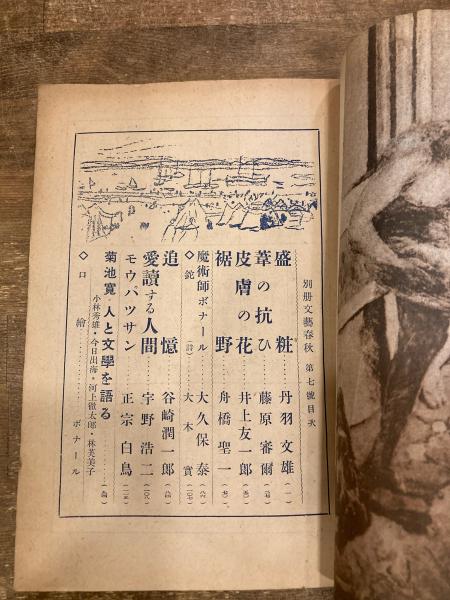 別册文藝春秋 第七號目次
盛粧 丹羽文雄
葦の抗ひ 藤原審爾
皮膚の花 井上友一郎
裾野 舟橋聖一
魔術師ボナール 大久保泰
◇鉈(詩) 大木實
追憶 谷崎潤一郎
愛讀する人間 宇野浩二
モウパッサン 正宗白鳥
菊池寛・人と文學を語る
小林秀雄・今日出海・河上徹太郎・林芙美子
◇口繪 ボナール